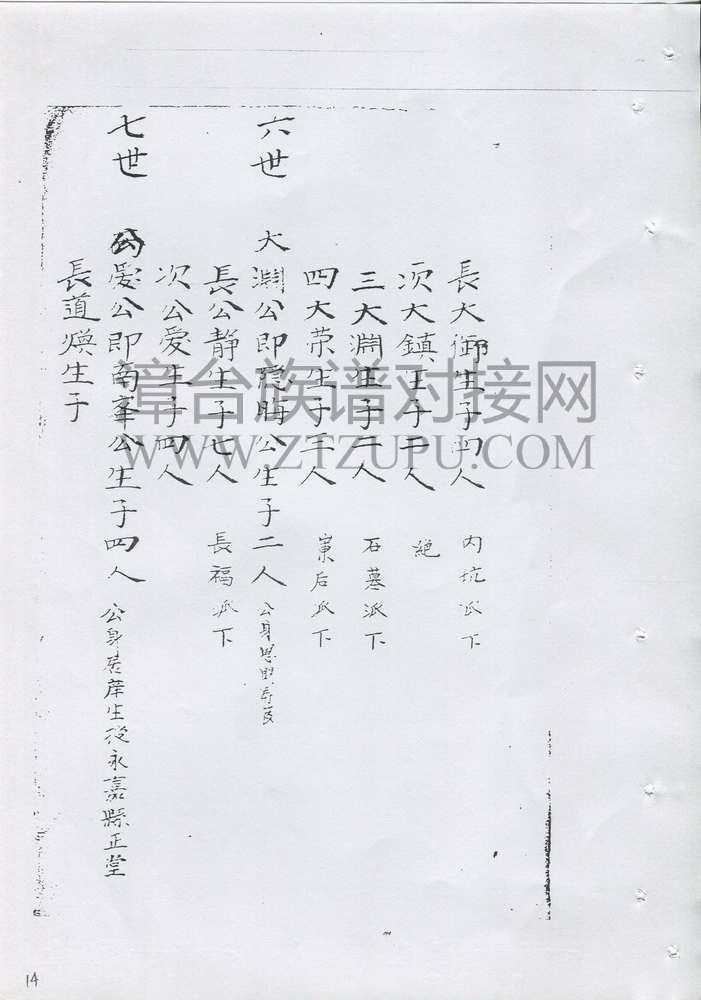 長大御生子四人 内坑派下
次大鎮生子二人 絶
三大淵生子二人 石墓派下
四大荣生子三人 寮后派下
六世 大淵公即隐晦公生子二人 公身恩賜寿
長公靜生子七人 長福派下
次公爱生子四人
七世 公爱公即南峯公生子四人 公身居庠生從永嘉縣正堂
長道煥生子
漳台族谱对接网
WWW.ZTZUPU.COM
14